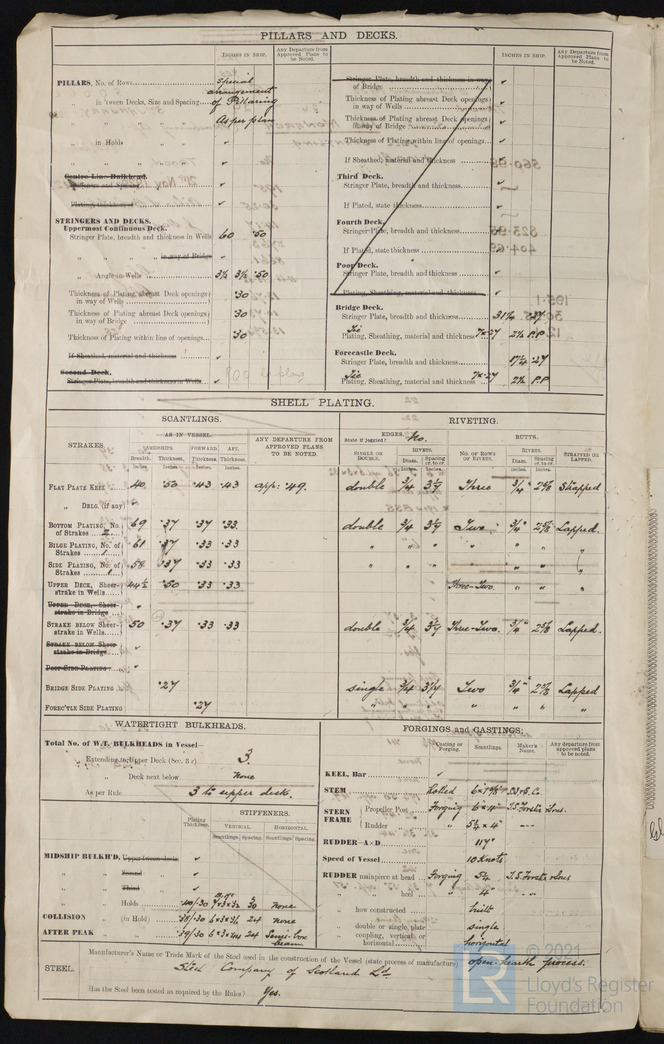 PILLARS AND DECKS.
INCHES IN SHIP.
Any Departure from Approved Plans to be Noted.
PILLARS, No. of Rows
special
arrangement
in 'tween Decks, Size and Spacing
of Pillaring
As per plan
in Holds
Centre Line Bulkhead.
Stiffeners and Spacing
Plating, thickness of
STRINGERS AND DECKS.
Uppermost Continuous Deck.
Stringer Plate, breadth and thickness in Wells 60 .50
in way of Bridge
Angle in Wells 3½ 3½ .50
Thickness of Plating abreast Deck openings in way of Wells .30
Thickness of Plating abreast Deck openings in way of Bridge .30
Thickness of Plating within line of openings .30
If Sheathed, material and thickness
Second Deck.
Stringer Plate, breadth and thickness in Wells
INCHES IN SHIP.
Any Departure from Approved Plans to be Noted.
Stringer Plate, breadth and thickness in way of Bridge
Thickness of Plating abreast Deck openings in way of Wells
Thickness of Plating abreast Deck openings in way of Bridge
Thickness of Plating within line of openings
If Sheathed, material and thickness
Third Deck.
Stringer Plate, breadth and thickness
If Plated, state thickness
Fourth Deck.
Stringer Plate, breadth and thickness
If Plated, state thickness
Poop Deck.
Stringer Plate, breadth and thickness
Plating, Sheathing, material and thickness
Bridge Deck.
Stringer Plate, breadth and thickness 31¼ .27
Tie
Plating, Sheathing, material and thickness 7 x .27 2½ P.P
Forecastle Deck.
Stringer Plate, breadth and thickness 17¼ .27
Tie
Plating, Sheathing, material and thickness 7 x .27 2½ P.P
SHELL PLATING.
SCANTLINGS.
RIVETING.
STRAKES.
AS IN VESSEL.
AMIDSHIPS
FORWARD
AFT.
Breadth.
Thickness.
Thickness.
Thickness.
ANY DEPARTURE FROM APPROVED PLANS TO BE NOTED.
EDGES.
State if joggled? No.
BUTTS.
SINGLE OR DOUBLE.
RIVETS.
Diam.
Spacing cr. to cr.
NO. OF ROWS OF RIVETS.
RIVETS.
Diam.
Spacing cr. to cr.
STRAPPED OR LAPPED.
FLAT PLATE KEEL 40 .50 .43 .43 app: .49. double ¾ Three ¾" Strapped
" DBLG. (if any)
BOTTOM PLATING, No. of Strakes 2 69 .37 .37 .33 double ¾ Two ¾" Lapped.
BILGE PLATING, No. of Strakes 1 61 .37 .33 .33 " " " " " "
SIDE PLATING, No. of Strakes 1 58 .37 .33 .33 " " " " " "
UPPER DECK, Sheer-strake in Wells 44½ .50 .33 .33 Three-Two. " " "
UPPER DECK, Sheer-strake in Bridge
STRAKE BELOW Sheer-strake in Wells 50 .37 .33 .33 double ¾ Three-Two. ¾" Lapped.
STRAKE BELOW Sheer-strake in Bridge
POOP SIDE PLATING
BRIDGE SIDE PLATING .27 single ¾ Two ¾" Lapped
FORECTLE SIDE PLATING .27 " " " " " "
WATERTIGHT BULKHEADS.
Total No. of W.T. BULKHEADS in Vessel—
Extending to Upper Deck (Sec. 3 c) 3.
" Deck next below none
As per Rule 3 to upper deck.
Plating Thickness.
STIFFENERS.
VERTICAL
HORIZONTAL
Scantlings.
Spacing.
Scantlings
Spacing.
MIDSHIP BULKH'D, Upper 'tween decks
" " Second
" " Third
" " Holds .40/.30 30 none
COLLISION (in Hold) .38/.30 24 none
AFTER PEAK .39/.30 24 Semi-box beam
FORGINGS and CASTINGS:
Casting or Forging.
Scantlings.
Maker's Name.
Any departure from approved plans to be noted.
KEEL, Bar
STEM Rolled
STERN FRAME
Propeller Post Forging 6" x 4" T.S. Forster & Sons.
Rudder " 5½ x 4"
RUDDER—A x D 117"
Speed of Vessel 10 Knots.
RUDDER mainpiece at head Forging 5¼ T.S. Forster & Sons
" " heel " 4" "
" how constructed built
" double or single plate single
" coupling, vertical or horizontal horizontal
STEEL.
Manufacturer's Name or Trade Mark of the Steel used in the construction of the Vessel (state process of manufacture) open-hearth process.
Steel Company of Scotland Ltd.
Has the Steel been tested as required by the Rules? Yes.
© 2021
LR
Lloyd's Register
Foundation